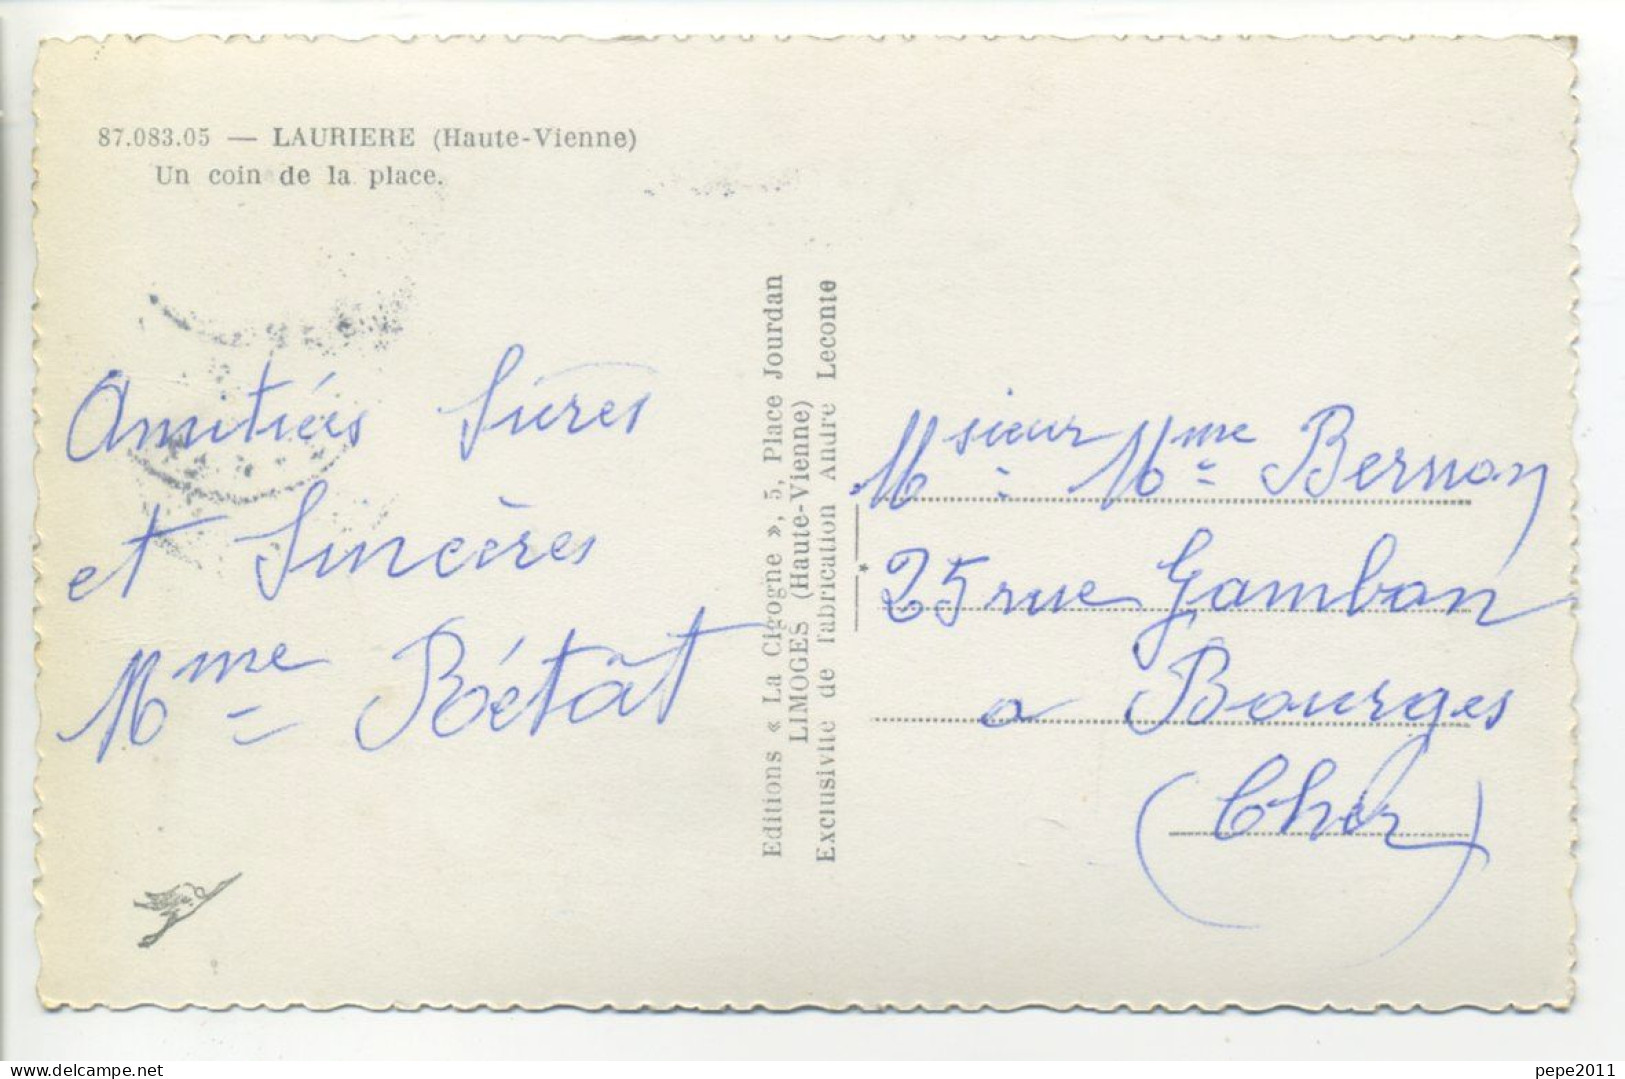 87.083.05 — LAURIERE (Haute-Vienne)
Un coin de la place.
Amitiés
et Sincères
Mme Rétat
Editions « La Cigogne », 5, Place Jourdan
LIMOGES (Haute-Vienne)
Exclusivite de fabrication Andre Leconte
Msieur Mme Bernon
25 rue Gambon
a Bourges
(Cher)
www.delcampe.net
pepe2011